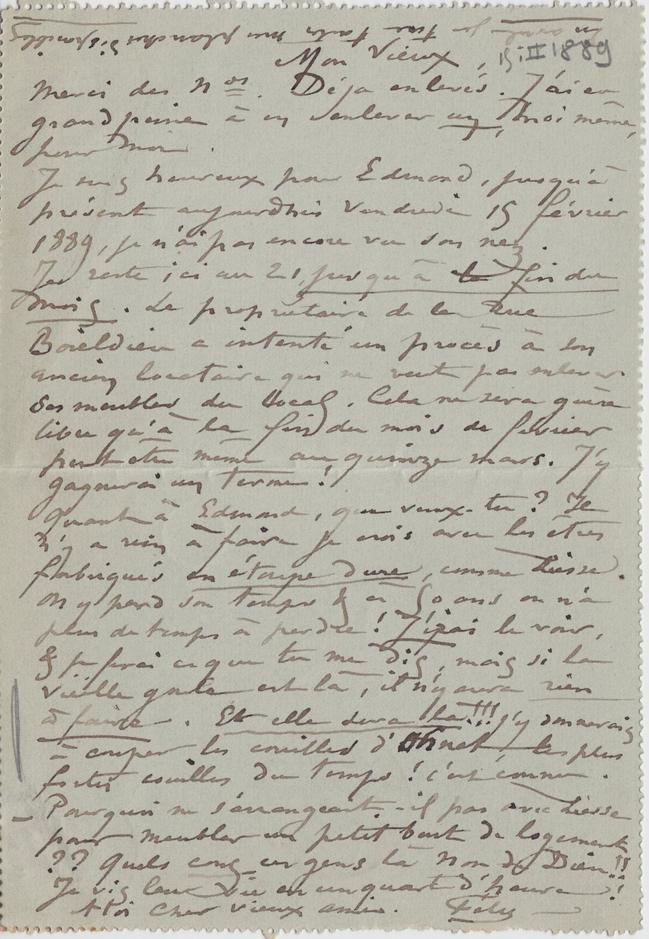 Mon Vieux, 15 II 1889
Merci des nos. Déjà enlevés. J'ai eu
grand peine à en enlever un, moi même,
pour moi.
Je suis heureux pour Edmond, jusqu'à
présent aujourdhui vendredi 15 février
1889, je n'ai pas encore vu son nez.
Je reste ici au 21, jusqu'à la fin du
mois. Le propriétaire de la Rue
Boïeldieu a intenté un procès à son
ancien locataire qui ne veut pas enlever
ses meubles du local. Cela ne sera guère
libre qu'à la fin du mois de février
peut être même au quinze mars. J'y
gagnerai un terme!
Quant à Edmond, que veux-tu? Il
n'y a rien à faire je crois avec les êtres
fabriqués en étoupe dure, comme Liesse.
On y perd son temps & à 50 ans on n'a
plus de temps à perdre! J'irai le voir,
& je ferai ce que tu me dis, mais si la
vieille goule est là, il n'y aura rien
à faire. Et elle sera là!!! j'y donnerais
à couper les couilles d'Ohnet les plus
fortes couilles du temps! c'est connu.
Pourquoi ne s'arrangeait-il pas avec Liesse
pour meubler un petit bout de logement
?? Quels ces gens là Nom de Dieu!!
Je vis leur vie en un quart d'heure!
A toi cher vieux ami. Fély